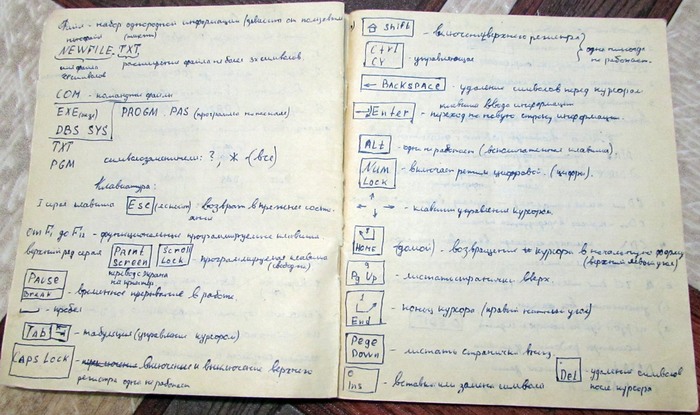 Файл - набор однородной информации (зависит от пользоват
NEWFILE.TXT
имя файла расширение файла не более 3х символов.
8 символов
COM - командные файлы
EXE PROGM.PAS (программа на паскале)
DBS SYS
TXT
PGM символозаменители: ?, ж (все)
Клавиатура:
I серая клавиша Esc (эскейп) - возврат в прежнее состо-
яние
От F1 до F12 - функциональные программируемые клавиши.
верхний ряд серая Print Screen Scroll Lock - программируемая клавиша
перевод экрана (свободны)
на принтер
PAUSE
Break - временное прерывание в работе.
- пробел
TAB - табуляция (управление курсором)
CAPS LOCK - включение и выключение верхнего
регистра одна не работает
Shift - верхнего регистра
Ctrl
СУ - управляющая одна никогда не работает.
← BACKSPACE - удаление символов перед курсором
клавиша ввода информации
Enter - переход на новую строку информации.
ALt - одна не работает (вспомогательная клавиша).
Num
Lock - включает режим цифровой. (цифры).
- клавиши управления курсором.
7
HOME (домой) - возвращение курсора в начальную форму
(верхний левый угол)
9
Pg Up - листать странички вверх.
1
End - конец курсора (правый нижний угол)
Pege
Down - листать странички вниз.
0
Ins - вставка или замена символа
Del - удаление символов
после курсора